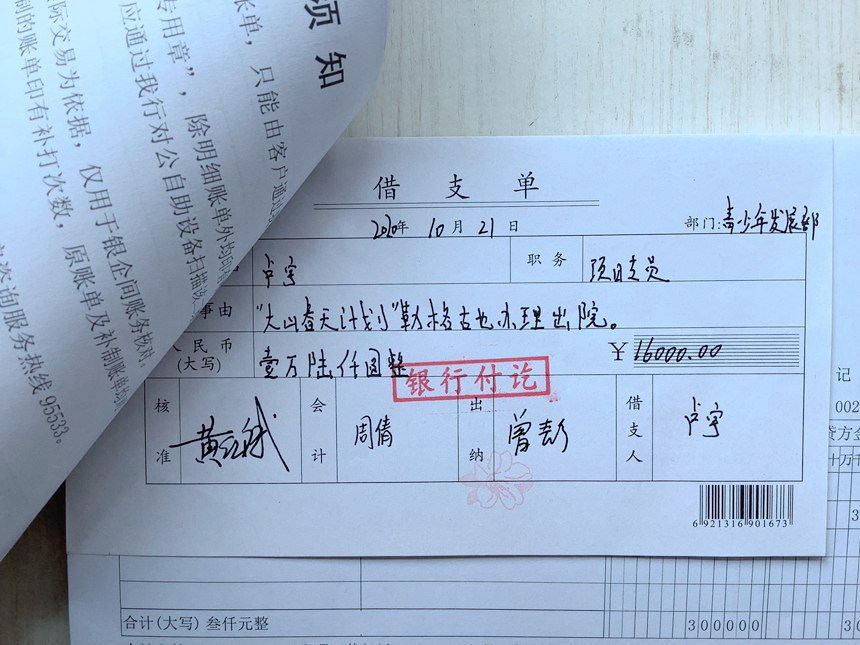 须知
账单，只能由客户通过
专用章”，除明细账单外均
应通过我行对公自助设备扫描
际交易为依据，仅用于银企间账务核对。
制的账单印有补打次数，原账单及补制账单
咨询服务热线95533。
借支单
2020年 10月 21日 部门:青少年发展部
卢宇 职务 项目专员
事由 “大山春天计划”勒格古也办理出院。
人民币(大写) 壹万陆仟圆整 ￥16000.00
银行付讫
核准 黄红斌 会计 周倩 出纳 曾彭 借支人 卢宇
6 921316 901673
记
002
贷方金
十万千
3
合计(大写) 叁仟元整 300000 30